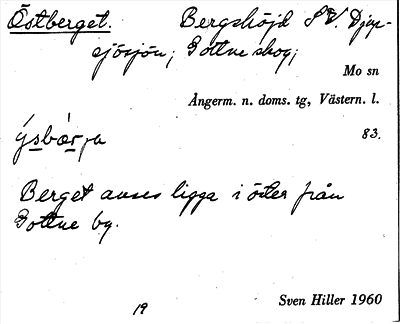 Östberget. Bergshöjd SV. Djup-
sjösjön; Gottne skog;
Mo sn
Ångerm. n. doms. tg, Västern. l.
83.
ýsbærja
Berget anses ligga i öster från
Gottne by.
19
Sven Hiller 1960